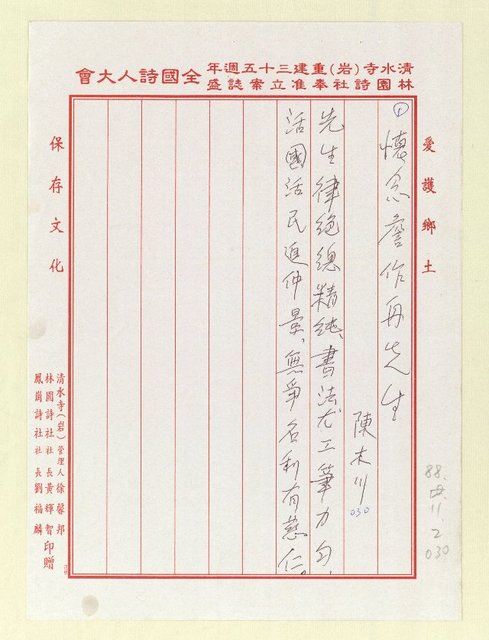 清水寺(岩)重建三十五週年
林園詩社奉准立案誌盛
全國詩人大會
愛護鄉土
① 懷念詹作舟先生
陳木川
030
先生律絕總精純、書法尤工筆力勻、
活國活民追仲景、無爭名利有慈仁。
保存文化
清水寺(岩)管理人徐馨邦
林園詩社社長黃輝智
鳳崗詩社社長劉福麟
印贈
88.
11.2
030